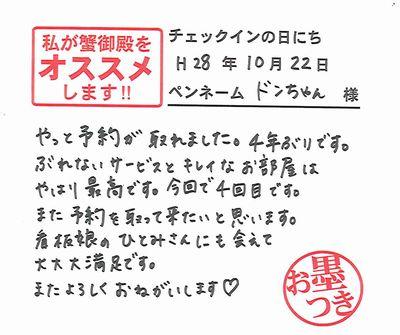 私が蟹御殿を
オススメ
します!!
チェックインの日にち
H28年10月22日
ペンネーム ドンちゃん 様
やっと予約が取れました。4年ぶりです。
ぶれないサービスとキレイなお部屋は
やはり最高です。今回で4回目です。
また予約を取って来たいと思います。
看板娘のひとみさんにも会えて
大大大満足です。
またよろしくおねがいします♡
お墨つき